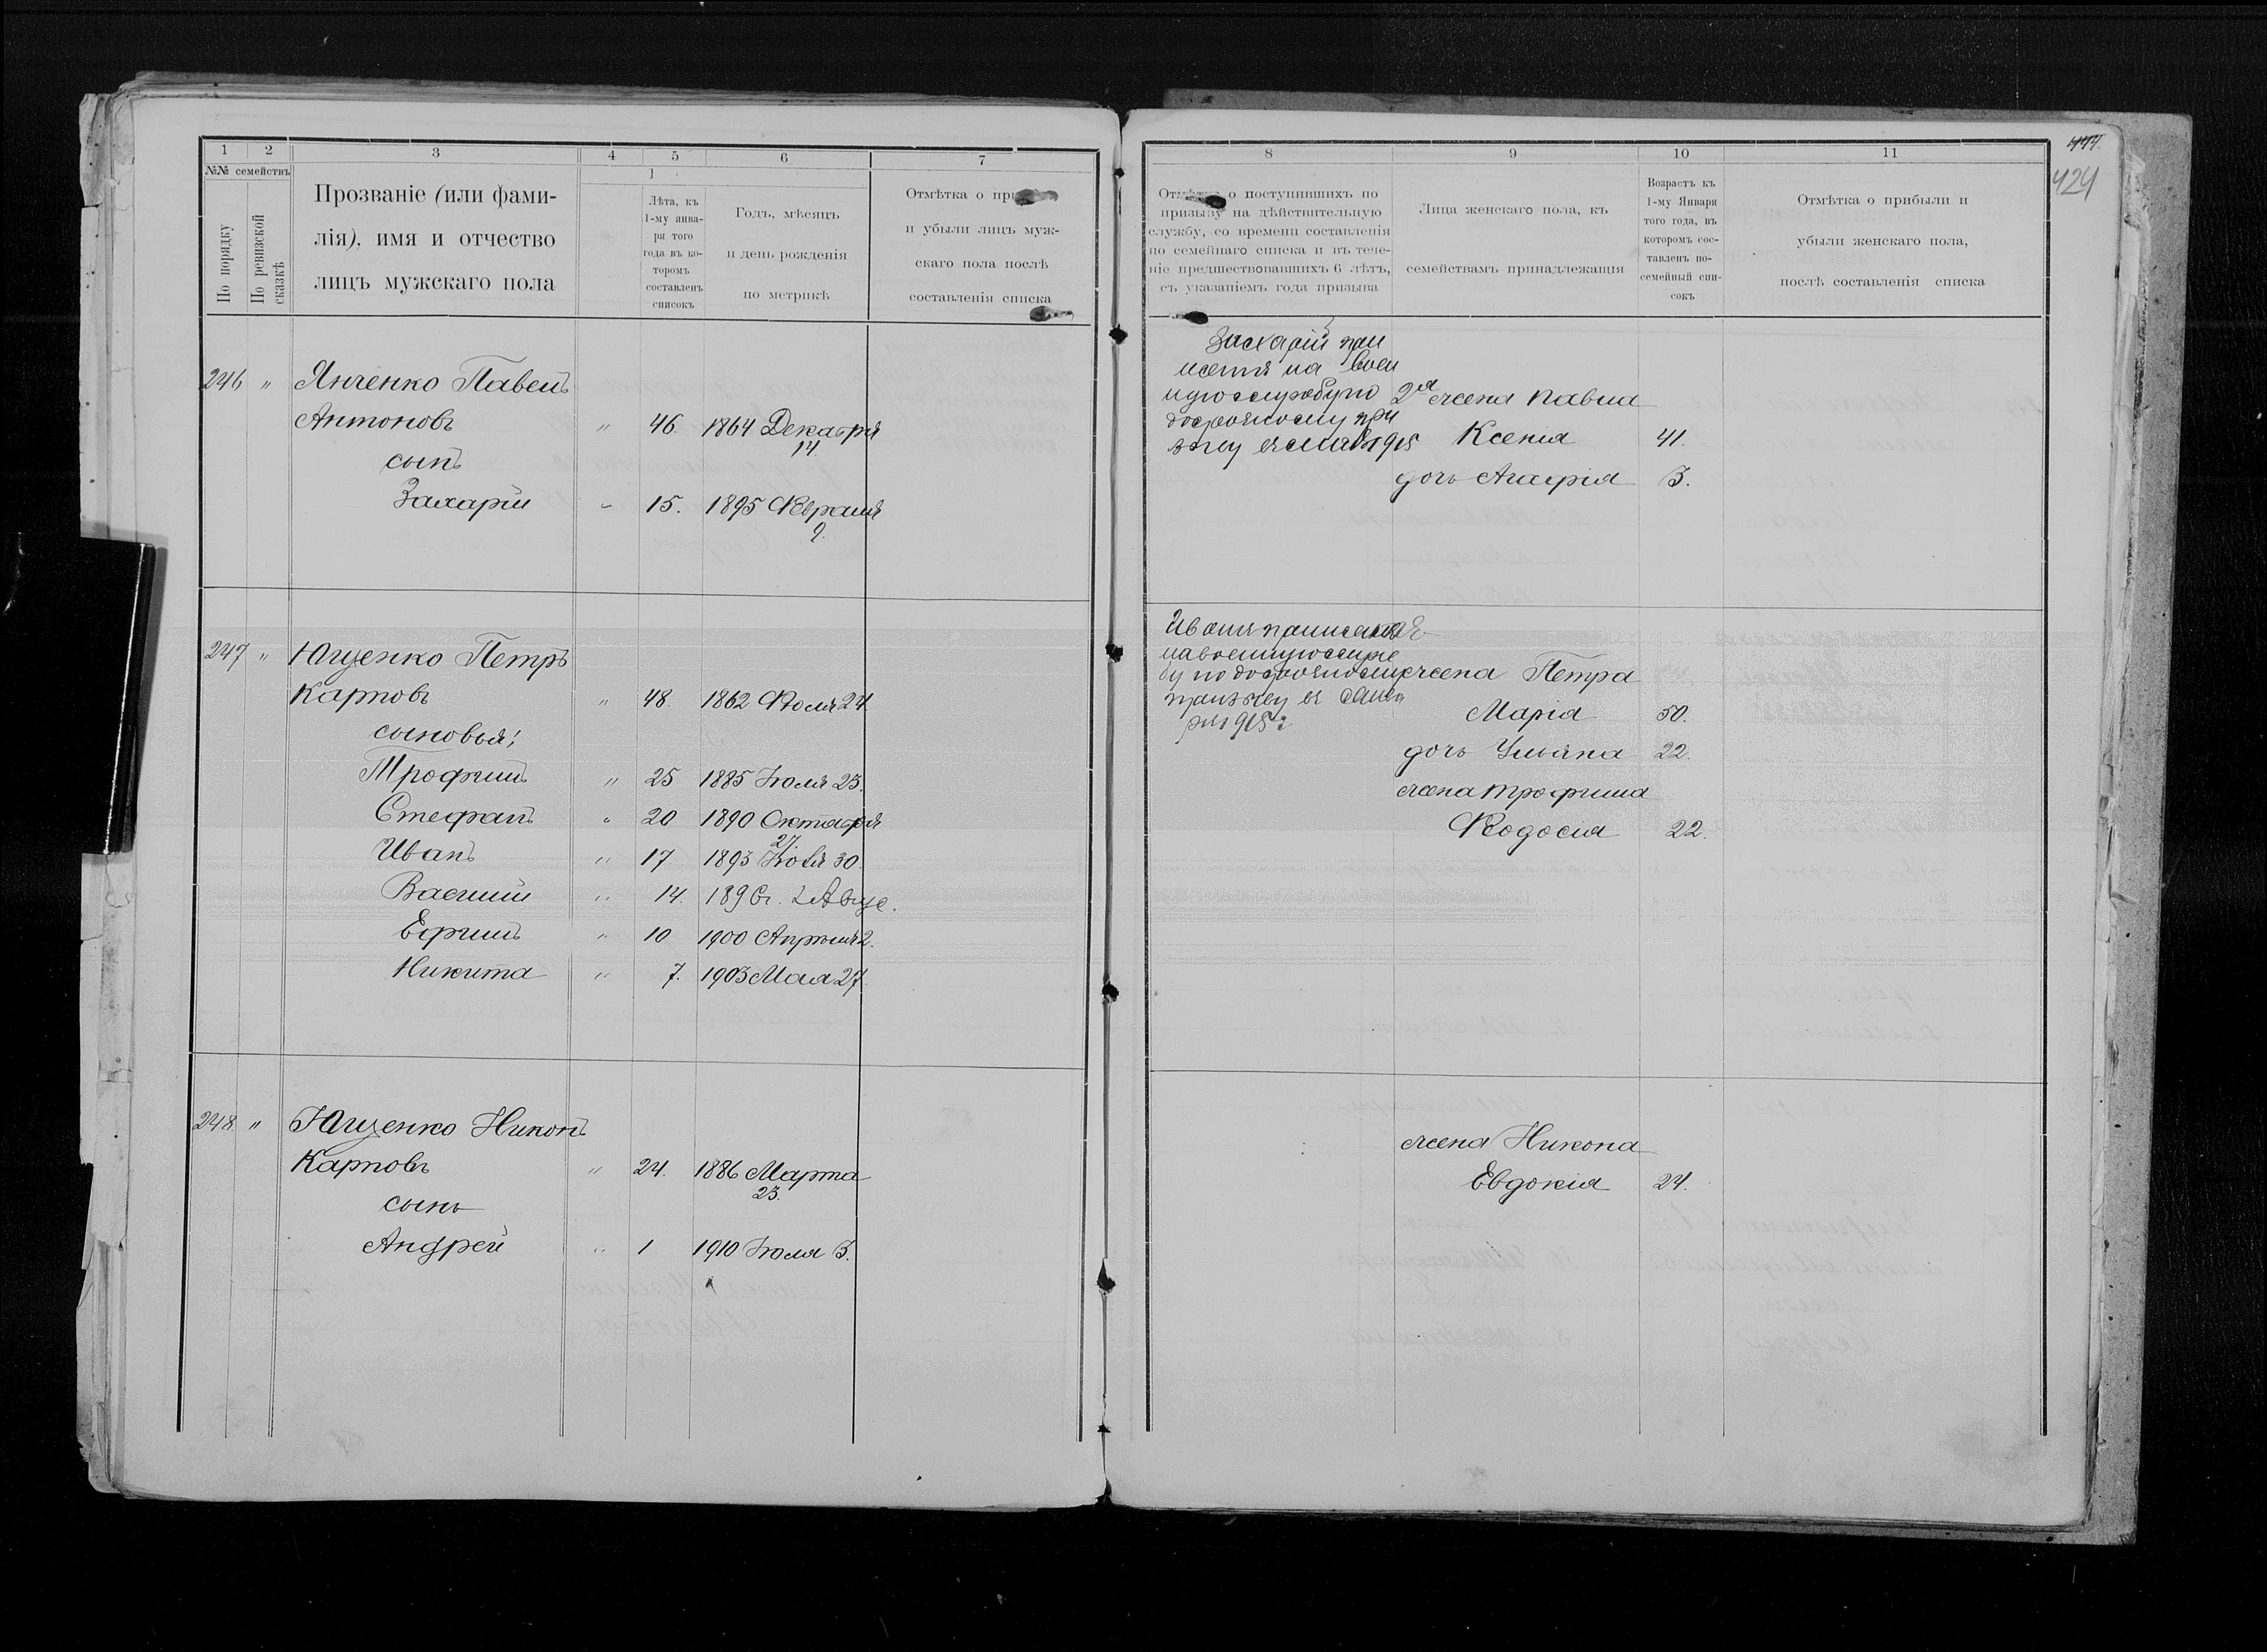 1 2 3 4 5 6 7
№№ семействъ
По порядку
По ревизской сказкѣ
Прозваніе (или фами-
лія), имя и отчество
лицъ мужскаго пола
Лѣта, къ
1-му янва-
ря того
года въ ко-
торомъ
составленъ
списокъ
Годъ, мѣсяцъ
и день рожденія
по метрикѣ
Отмѣтка о
и убыли лицъ муж-
скаго пола послѣ
составленія списка
246 " Янченко Павелъ
Антоновъ " 46. 1864 Декабря
14.
сынъ
Захарій " 15. 1895 Февраля
9.
247 " Ющенко Петръ
Карповъ " 48. 1862 Іюля 24
сыновья:
Трофимъ " 25 1885 Іюля 23.
Стефанъ " 20 1890 Октября
27.
Иванъ " 17. 1893 30.
Василій " 14. 1896г. Авгус.
Ефимъ " 10 1900 Апрѣля 2.
Никита " 7. 1903 Мая 27
248 " Ющенко Никонъ
Карповъ " 24. 1886 Марта
23.
сынъ
Андрей " 1 1910 Іюля 3.
8 9 10 11
424
Отмѣтка о поступившихъ по
призыву на дѣйствительную
службу, со времени составленія
по семейнаго списка и въ тече-
ніе предшествовавшихъ 6 лѣтъ,
съ указаніемъ года призыва
Лица женскаго пола, къ
семействамъ принадлежащія
Возрастъ къ
1-му Января
того года, въ
которомъ сос-
тавленъ по-
семейный спи-
сокъ
Отмѣтка о прибыли и
убыли женскаго пола,
послѣ составленія списка
Захарій при
на воен
ную службу по
досрочному при
зыву 1915
2я жена Павла
Ксенія 41.
дочь Агафія 3.
Иванъ
на военную служ
бу по досрочному
призыву въ
1915 г
жена Петра
Марія 50.
дочь Ульяна 22.
жена Трофима
Феодосія 22.
жена Никона
Евдокія 24.